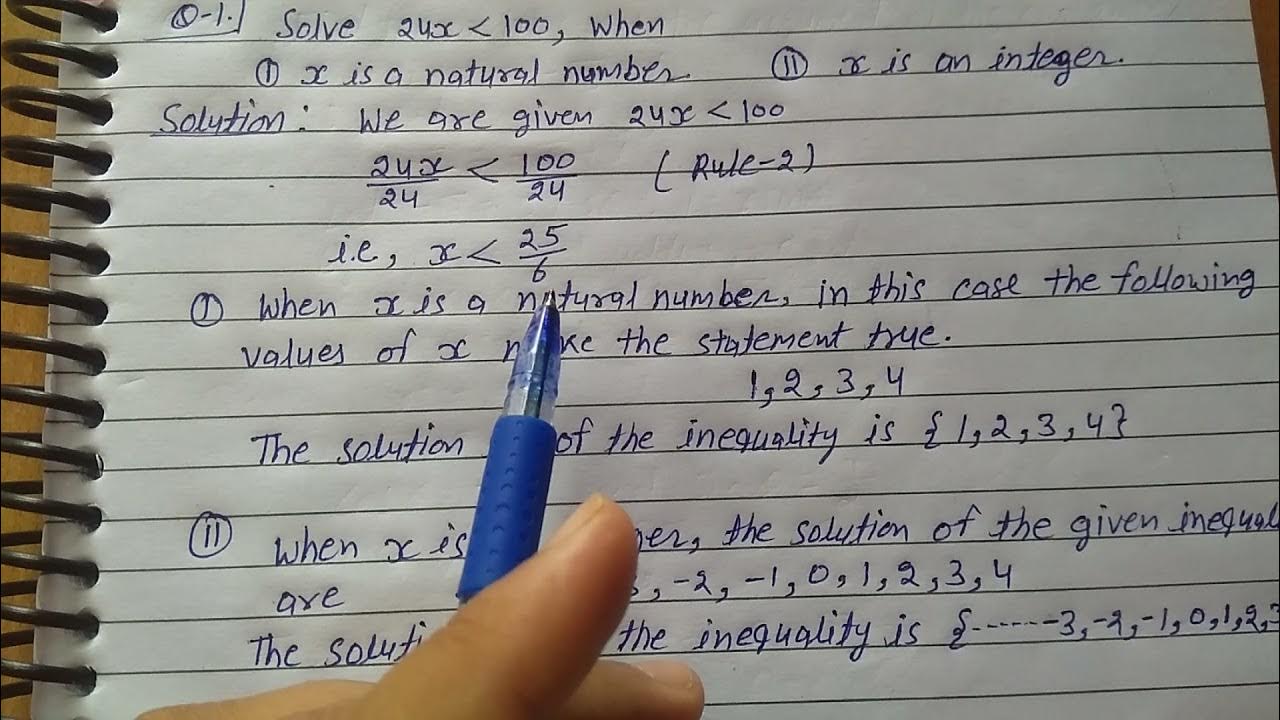 Q-1. Solve 24x < 100, when
(I) x is a natural number. (II) x is an integer.
Solution: We are given 24x < 100
24x/24 < 100/24 (Rule-2)
i.e, x < 25/6
(I) When x is a natural number, in this case the following
values of x make the statement true.
1, 2, 3, 4
The solution of the inequality is {1, 2, 3, 4}
(II) When x is the solution of the given inequal
are , -2, -1, 0, 1, 2, 3, 4
The soluti the inequality is {------3, -2, -1, 0, 1, 2, 3